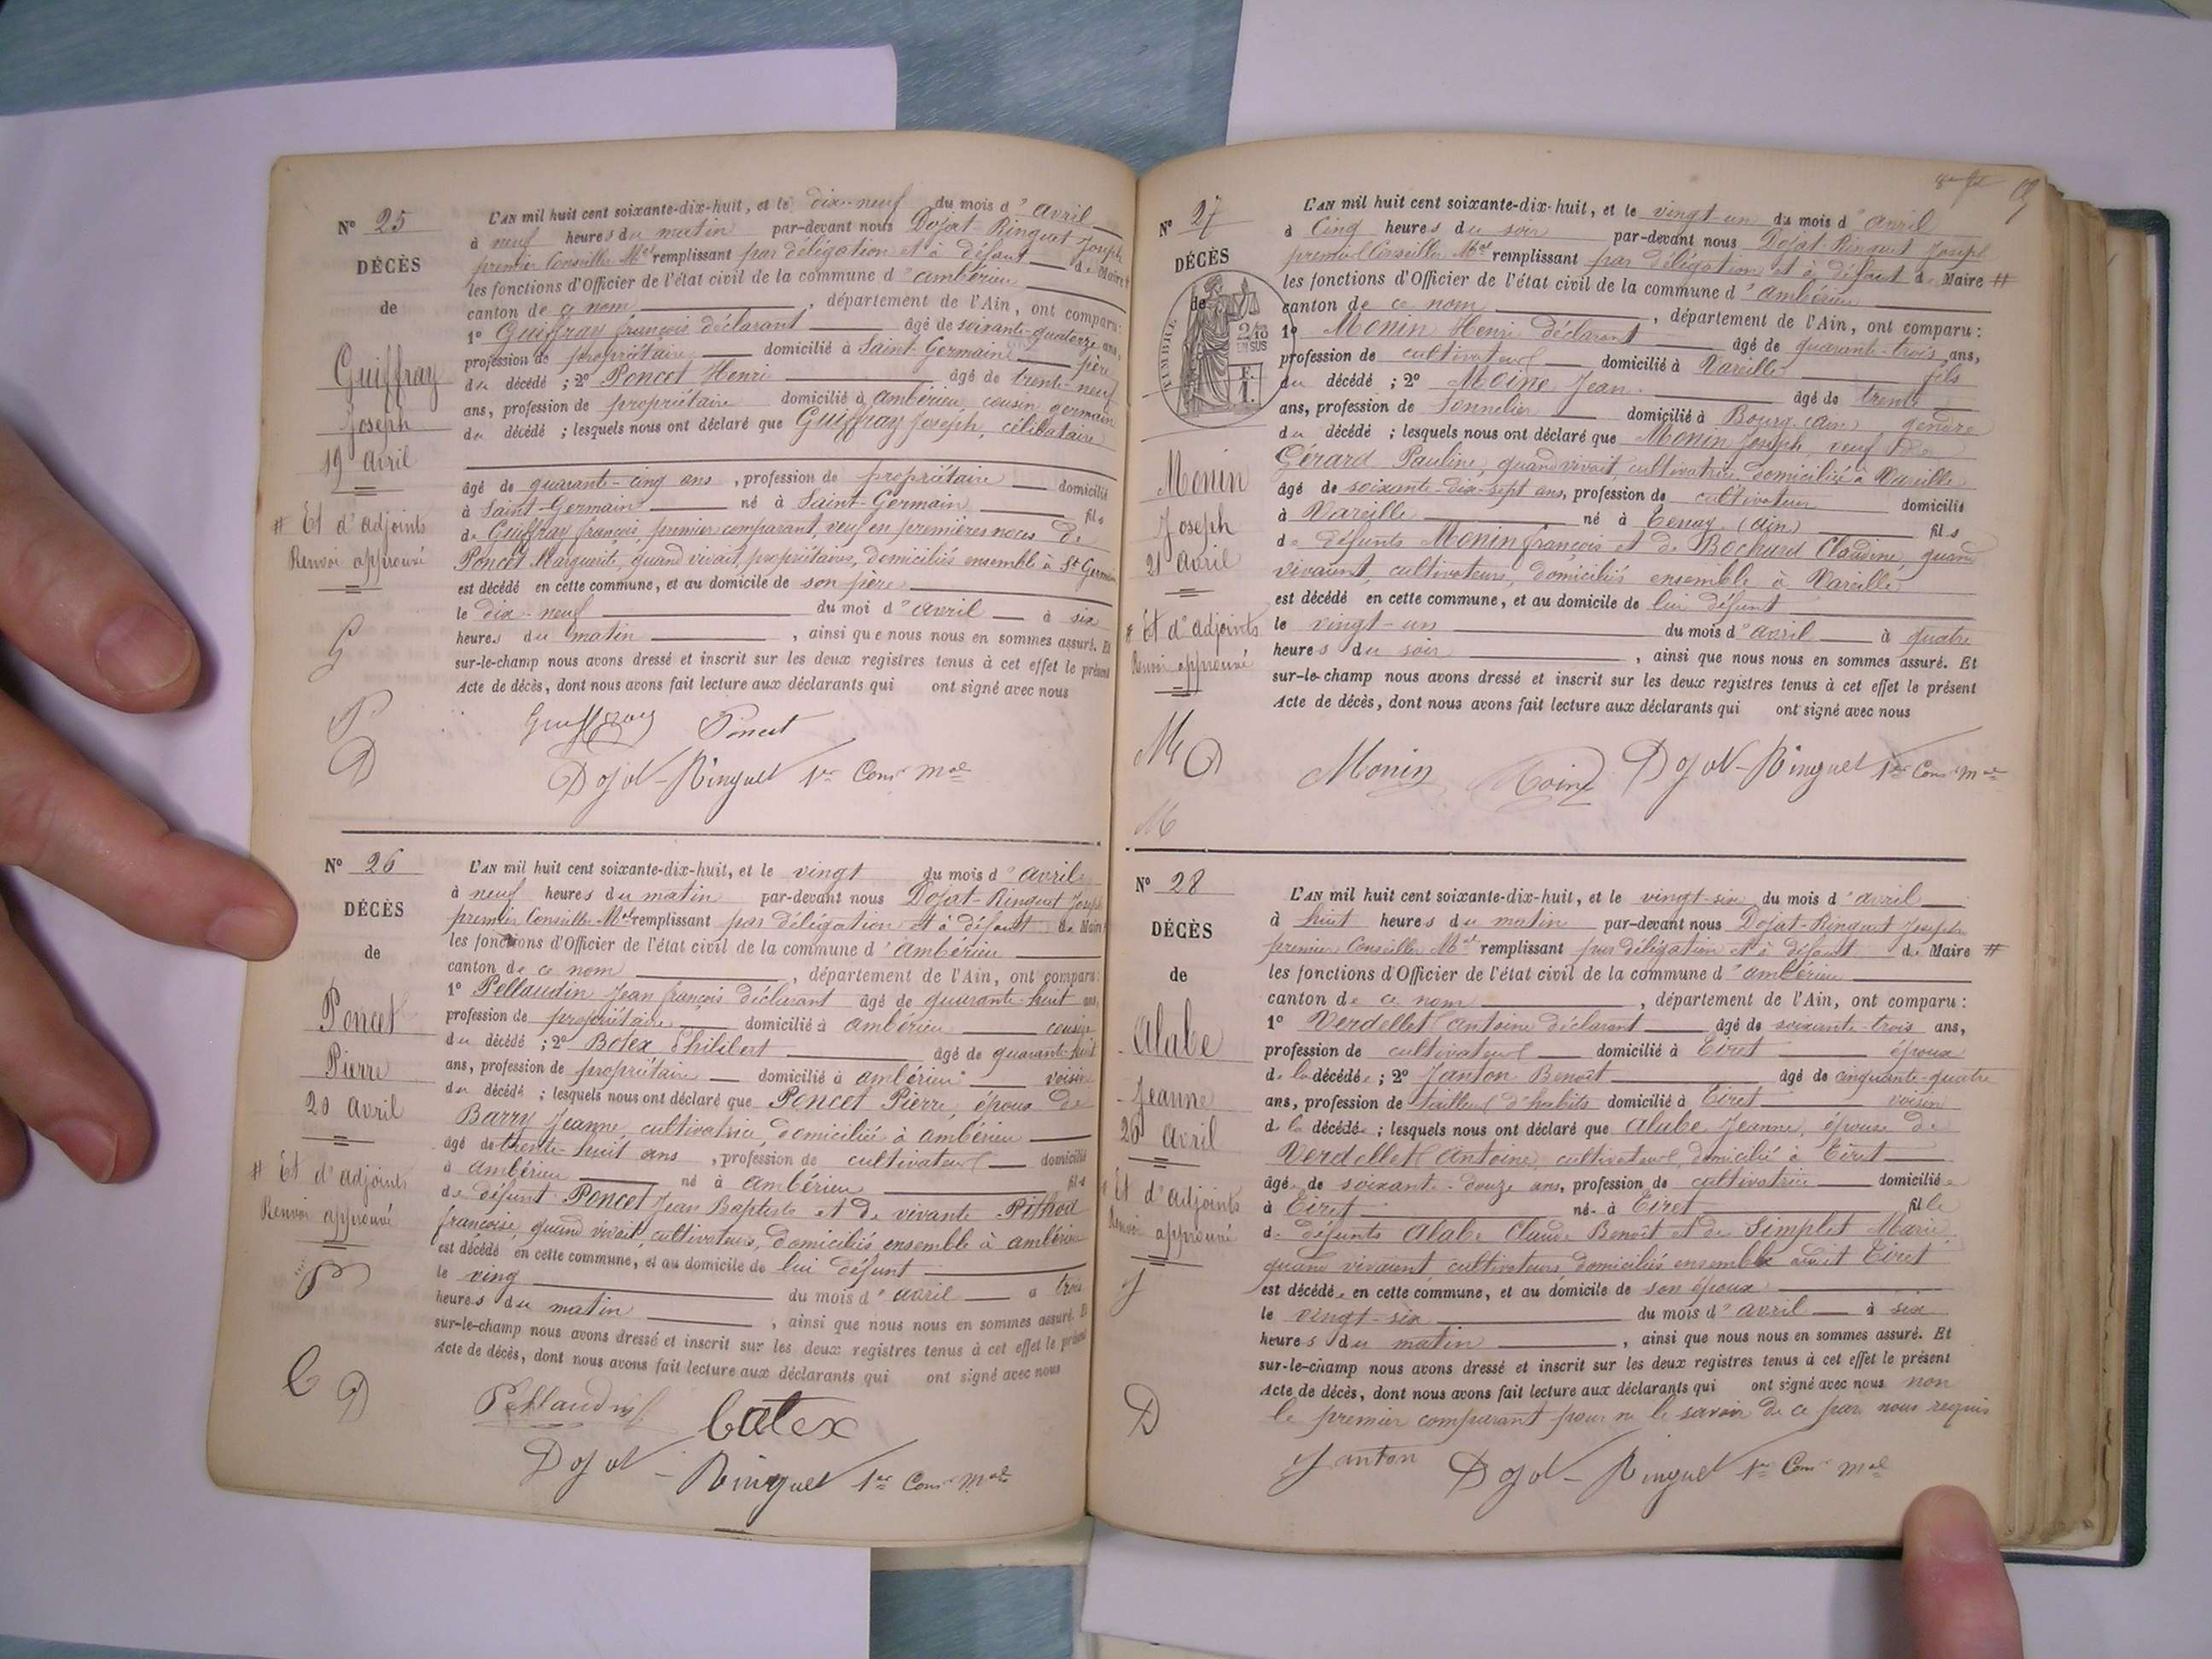 N° 25
DÉCÈS
de
Guiffray
Joseph
19 avril
# Et d'adjoints
Renvoi approuvé
G
P
D
L'AN mil huit cent soixante-dix-huit, et le dix-neuf du mois d'avril
à neuf heures du matin par-devant nous Dojat-Ringuet Joseph
premier Conseiller Mal remplissant par délégation et à défaut de Maire #
les fonctions d'Officier de l'état civil de la commune d'ambérieu
canton de ce nom, département de l'Ain, ont comparu :
1° Guiffray françois déclarant âgé de soixante-quatorze ans,
profession de propriétaire domicilié à Saint-Germain père
du décédé ; 2° Poncet Henri âgé de trente-neuf
ans, profession de propriétaire domicilié à ambérieu cousin germain
du décédé ; lesquels nous ont déclaré que Guiffray Joseph, célibataire
âgé de quarante-cinq ans, profession de propriétaire domicilié
à Saint-Germain né à Saint-Germain fils
de Guiffray françois, premier comparant, veuf en premières noces de
Poncet Marguerite, quand vivait, propriétaires, domiciliés ensemble à St Germain
est décédé en cette commune, et au domicile de son père
le dix-neuf du moi d'avril à six
heures du matin, ainsi que nous nous en sommes assuré. Et
sur-le-champ nous avons dressé et inscrit sur les deux registres tenus à cet effet le présent
Acte de décès, dont nous avons fait lecture aux déclarants qui ont signé avec nous
Guiffray Poncet
Dojat-Ringuet 1er Conr mal
N° 26
DÉCÈS
de
Poncet
Pierre
20 avril
# Et d'adjoints
Renvoi approuvé
D
L'AN mil huit cent soixante-dix-huit, et le vingt du mois d'avril
à neuf heures du matin par-devant nous Dojat-Ringuet Joseph
premier Conseiller Mal remplissant par délégation et à défaut de Maire #
les fonctions d'Officier de l'état civil de la commune d'ambérieu
canton de ce nom, département de l'Ain, ont comparu :
1° Pellaudin Jean françois déclarant âgé de quarante-huit ans,
profession de propriétaire domicilié à ambérieu cousin
du décédé ; 2° Botex Philibert âgé de quarante-huit
ans, profession de propriétaire domicilié à ambérieu voisin
du décédé ; lesquels nous ont déclaré que Poncet Pierre, époux de
Barry Jeanne, cultivatrice, domiciliée à ambérieu
âgé de trente-huit ans, profession de cultivateur domicilié
à ambérieu né à ambérieu fils
de défunt Poncet Jean Baptiste et de vivante Pithod
françoise, quand vivait, cultivateurs, domiciliés ensemble à ambérieu
est décédé en cette commune, et au domicile de lui défunt
le ving du mois d'avril à trois
heures du matin, ainsi que nous nous en sommes assuré. Et
sur-le-champ nous avons dressé et inscrit sur les deux registres tenus à cet effet le présent
Acte de décès, dont nous avons fait lecture aux déclarants qui ont signé avec nous
Pellaudin botex
Dojat-Ringuet 1er Conr mal
N° 27
DÉCÈS
de
TIMBRE
2/10
EN SUS
Monin
Joseph
21 avril
# Et d'adjoints
Renvoi approuvé
M D
M
L'AN mil huit cent soixante-dix-huit, et le vingt-un du mois d'avril
à Cinq heures du soir par-devant nous Dojat-Ringuet Joseph
premier Conseiller Mal remplissant par délégation et à défaut de Maire #
les fonctions d'Officier de l'état civil de la commune d'ambérieu
canton de ce nom, département de l'Ain, ont comparu :
1° Monin Henri déclarant âgé de quarante-trois ans,
profession de cultivateur domicilié à Vareille fils
du décédé ; 2° Moine Jean âgé de trente
ans, profession de Tonnelier domicilié à Bourg (ain) gendre
du décédé ; lesquels nous ont déclaré que Monin Joseph, veuf de
Gérard Pauline, quand vivait, cultivatrice domiciliée à Vareille
âgé de soixante-dix-sept ans, profession de cultivateur domicilié
à Vareille né à Tenay (ain) fils
de défunts Monin françois et de Bochard Claudine, quand
vivaient, cultivateurs, domiciliés ensemble à Vareille
est décédé en cette commune, et au domicile de lui défunt
le vingt-un du mois d'avril à quatre
heures du soir, ainsi que nous nous en sommes assuré. Et
sur-le-champ nous avons dressé et inscrit sur les deux registres tenus à cet effet le présent
Acte de décès, dont nous avons fait lecture aux déclarants qui ont signé avec nous
Monin Moine Dojat-Ringuet 1er Conr mal
N° 28
DÉCÈS
de
Alabe
Jeanne
26 avril
# Et d'adjoints
Renvoi approuvé
J
D
L'AN mil huit cent soixante-dix-huit, et le vingt-six du mois d'avril
à huit heures du matin par-devant nous Dojat-Ringuet Joseph
premier Conseiller Mal remplissant par délégation et à défaut de Maire #
les fonctions d'Officier de l'état civil de la commune d'ambérieu
canton de ce nom, département de l'Ain, ont comparu :
1° Verdellet antoine déclarant âgé de soixante-trois ans,
profession de cultivateur domicilié à Tiret époux
de la décédée ; 2° Janton Benoît âgé de cinquante-quatre
ans, profession de tailleur d'habits domicilié à Tiret voisin
de la décédée ; lesquels nous ont déclaré que alabe Jeanne, épouse de
Verdellet Antoine, cultivateur, domicilié à Tiret
âgée de soixante-douze ans, profession de cultivatrice domiciliée
à Tiret née à Tiret fille
de défunts Alabe Claude Benoît et de Simplet Marie
quand vivaient cultivateurs domiciliés ensemble audit Tiret
est décédée en cette commune, et au domicile de son époux
le vingt-six du mois d'avril à six
heures du matin, ainsi que nous nous en sommes assuré. Et
sur-le-champ nous avons dressé et inscrit sur les deux registres tenus à cet effet le présent
Acte de décès, dont nous avons fait lecture aux déclarants qui ont signé avec nous non
le premier comparant pour ne le savoir de ce par nous requis
Janton Dojat-Ringuet 1er Conr mal